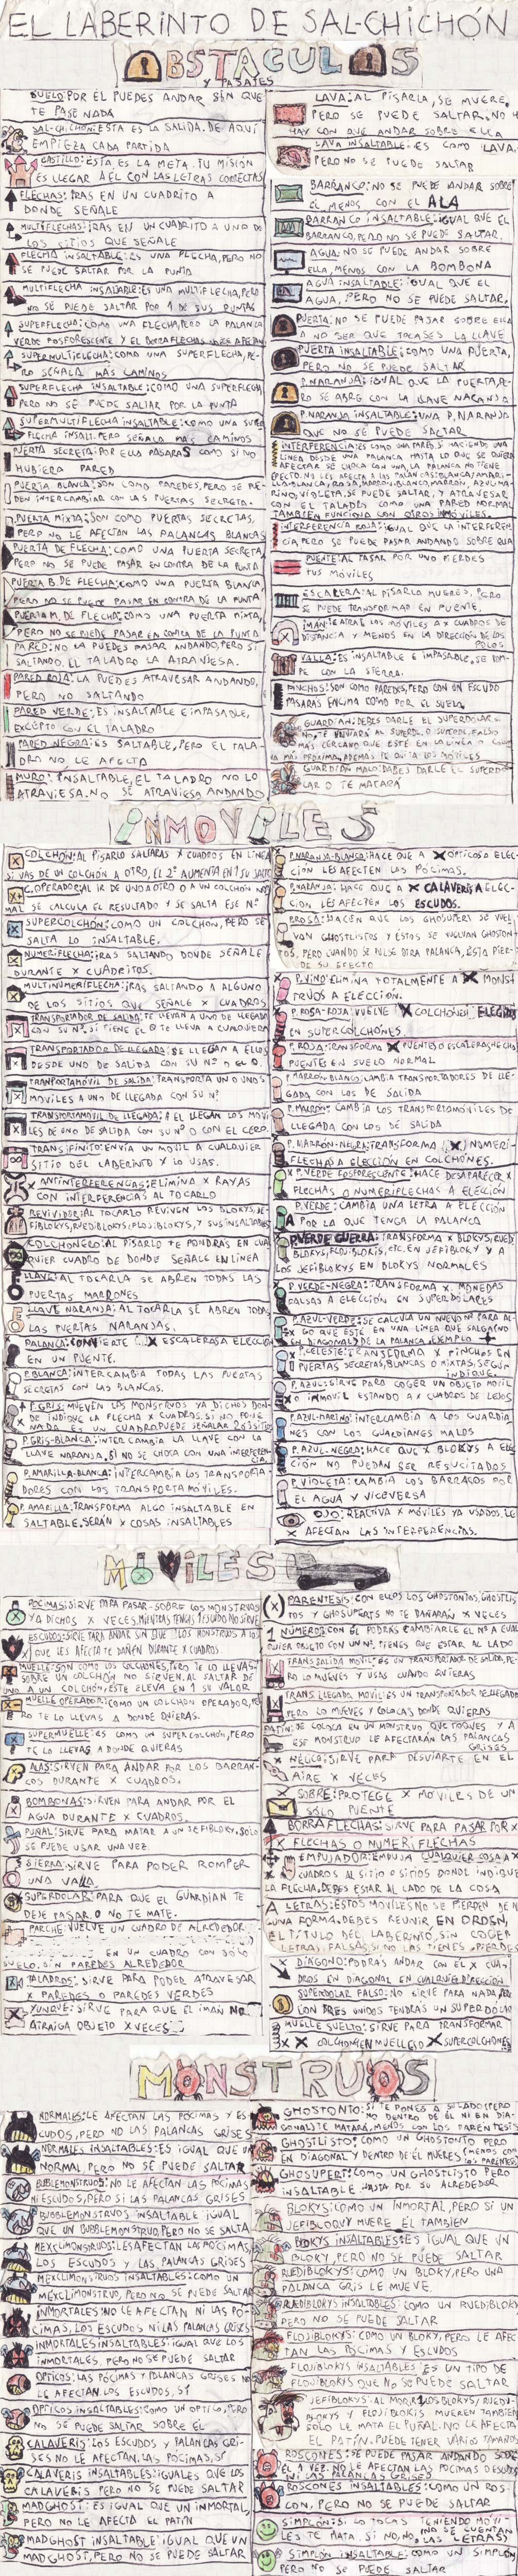 EL LABERINTO DE SAL-CHICHÓN
OBSTACULOS
Y PASAJES
SUELO: POR EL PUEDES ANDAR SIN QUE
TE PASE NADA
SAL-CHICHON: ESTA ES LA SALIDA. DE AQUÍ
EMPIEZA CADA PARTIDA
CASTILLO: ESTA ES LA META. TU MISIÓN
ES LLEGAR A ÉL CON LAS LETRAS CORRECTAS
FLECHAS: IRAS EN UN CUADRITO A
DONDE SEÑALE
MULTIFLECHAS: IRAS EN UN CUADRITO A UNO DE
LOS SITIOS QUE SEÑALE
FLECHA INSALTABLE: ES UNA FLECHA, PERO NO
SE PUEDE SALTAR POR LA PUNTA
MULTIFLECHA INSALTABLE: ES UNA MULTIFLECHA, PERO
NO SE PUEDE SALTAR POR 1 DE SUS PUNTAS
SUPERFLECHA: COMO UNA FLECHA, PERO LA PALANCA
VERDE FOSFORESCENTE Y EL BORRAFLECHAS NO LE AFECTAN
SUPERMULTIFLECHA: COMO UNA SUPERFLECHA, PE-
RO SEÑALA MAS CAMINOS
SUPERFLECHA INSALTABLE: COMO UNA SUPERFLECHA
PERO NO SE PUEDE SALTAR POR LA PUNTA
SUPERMULTIFLECHA INSALTABLE: COMO UNA SUPER
FLECHA INSALT. PERO SEÑALA MÁS CAMINOS
PUERTA SECRETA: POR ELLA PASARAS COMO SI NO
HUBIERA PARED
PUERTA BLANCA: SON COMO PAREDES, PERO SE PUE-
DEN INTERCAMBIAR CON LAS PUERTAS SECRETAS.
PUERTA MIXTA: SON COMO PUERTAS SECRETAS,
PERO NO LE AFECTAN LAS PALANCAS BLANCAS
PUERTA DE FLECHA: COMO UNA PUERTA SECRETA
PERO NO SE PUEDE PASAR EN CONTRA DE LA PUNTA
PUERTA B. DE FLECHA: COMO UNA PUERTA BLANCA
PERO NO SE PUEDE PASAR EN CONTRA DE LA PUNTA
PUERTA M. DE FLECHA: COMO UNA PUERTA MIXTA
PERO NO SE PUEDE PASAR EN CONTRA DE LA PUNTA
PARED: NO LA PUEDES PASAR ANDANDO, PERO SI
SALTANDO, EL TALADRO LA ATRAVIESA.
PARED ROJA: LA PUEDES ATRAVESAR ANDANDO,
PERO NO SALTANDO
PARED VERDE: ES INSALTABLE E IMPASABLE,
EXCEPTO CON EL TALADRO
PARED NEGRA: ES SALTABLE, PERO EL TALA-
DRO NO LE AFECTA
MURO: INSALTABLE, EL TALADRO NO LO
ATRAVIESA. NO SE ATRAVIESA ANDANDO
LAVA: AL PISARLA, SE MUERE,
PERO SE PUEDE SALTAR. NO H
HAY CON QUE ANDAR SOBRE ELLA
LAVA INSALTABLE: ES COMO LAVA
PERO NO SE PUEDE SALTAR
BARRANCO: NO SE PUEDE ANDAR SOBRE
EL MENOS CON EL ALA
BARRANCO INSALTABLE: IGUAL QUE EL
BARRANCO, PERO NO SE PUEDE SALTAR.
AGUA: NO SE PUEDE ANDAR SOBRE
ELLA, MENOS CON LA BOMBONA
AGUA INSALTABLE: IGUAL QUE EL
AGUA, PERO NO SE PUEDE SALTAR.
PUERTA: NO SE PUEDE PASAR SOBRE ELLA
A NO SER QUE TOCASES LA LLAVE
PUERTA INSALTABLE: COMO UNA PUERTA,
PERO NO SE PUEDE SALTAR
P. NARANJA: IGUAL QUE LA PUERTA, PE-
RO SE ABRE CON LA LLAVE NARANJA
P. NARANJA INSALTABLE: UNA P. NARANJA
QUE NO SE PUEDE SALTAR
INTERFERENCIA: ES COMO UNA PARED. SI HACIENDO UNA
LÍNEA DESDE UNA PALANCA HASTA LO QUE SE QUIERA
AFECTAR SE CHOCA CON UNA LA PALANCA NO TIENE
SE PUEDE SALTAR, Y ATRAVESAR
CON EL TALADRO COMO UNA PARED NORMAL
TAMBIEN FUNCIONA CON OTROS INMÓVILES.
INTERFERENCIA ROJA: IGUAL QUE LA INTERFEREN-
CIA, PERO SE PUEDE PASAR ANDANDO SOBRE
PUENTE: AL PASAR POR UNO PIERDES
TUS MÓVILES
ESCALERA: AL PISARLO MUERES, PERO
SE PUEDE TRANSFORMAR EN PUENTE.
IMAN: ATRAE LOS MÓVILES A X CUADROS DE
DISTANCIA Y MENOS EN LA DIRECCIÓN DE LOS
POLOS
VALLA: ES INSALTABLE E IMPASABLE. SE ROM-
PE CON LA SIERRA.
PINCHOS: SON COMO PAREDES, PERO CON UN ESCUDO
PASARAS ENCIMA COMO POR EL SUELO
GUARDIAN: DEBES DARLE EL SUPERDOLAR O
NO, TE ENVIARÁ AL SUPERD. O SUPERD. FALSO
MAS CERCANO QUE ESTÉ EN LA LÍNEA O
MÁS PRÓXIMA, ADEMÁS TE QUITA LOS MÓVILES
GUARDIAN MALO: DEBES DARLE EL SUPERDO-
LAR O TE MATARÁ
INMOVILES
COLCHÓN: AL PISARLO SALTARAS X CUADROS EN LÍNEA
SI VAS DE UN COLCHÓN A OTRO, EL 2º AUMENTA EN 1 SU SALTO
C. OPERADOR: AL IR DE UNO A OTRO O A UN COLCHÓN NOR-
MAL SE CALCULA EL RESULTADO Y SE SALTA ESE Nº
SUPERCOLCHÓN: COMO UN COLCHÓN, PERO SE
SALTA LO INSALTABLE.
NUMERIFLECHA: IRAS SALTANDO DONDE SEÑALE
DURANTE X CUADRITOS.
MULTINUMERIFLECHA: IRAS SALTANDO A ALGUNO
DE LOS SITIOS QUE SEÑALE X CUADROS
TRANSPORTADOR DE SALIDA: TE LLEVAN A UNO DE LLEGADA
CON SU Nº. SI TIENE EL 0 TE LLEVA A CUALQUIERA
TRANSPORTADOR DE LLEGADA: SE LLEGAN A ELLOS
DESDE UNO DE SALIDA CON SU Nº O EL 0.
TRANPORTAMOVIL DE SALIDA: TRANSPORTA UNO UNOS
MÓVILES A UNO DE LLEGADA CON SU Nº
TRANSPORTAMOVIL DE LLEGADA: A EL LLEGAN LOS MOVI-
LES DE UNO DE SALIDA CON SU Nº O CON EL CERO.
TRANSIFINITO: ENVIA UN MÓVIL A CUALQUIER
SITIO DEL LABERINTO Y LO USAS.
ANTINTERFERENCIAS: ELIMINA X RAYAS
CON INTERFERENCIAS AL TOCARLO
REVIVIDOR: AL TOCARLO REVIVEN LOS BLOKYS, JE-
FIBLOKYS, RUEDIBLOKYS, FLOJIBLOKYS, Y SUS INSALTABLES
COLCHONERO: AL PISARLO TE PONDRAS EN CUAL-
QUIER CUADRO DE DONDE SEÑALE EN LÍNEA
LLAVE: AL TOCARLA SE ABREN TODAS LAS
PUERTAS MARRONES
LLAVE NARANJA: AL TOCARLA SE ABREN TODAS
LAS PUERTAS NARANJAS.
PALANCA: CONVIERTE X ESCALERAS A ELECCIÓN
EN UN PUENTE.
P. BLANCA: INTERCAMBIA TODAS LAS PUERTAS
SECRETAS CON LAS BLANCAS.
P. GRIS: MUEVEN LOS MONSTRUOS YA DICHOS DON-
DE INDIQUE LA FLECHA X CUADROS. SI NO PONE
NADA, ES UN CUADRO PUEDE SEÑALAR 2 SITIOS
P. GRIS-BLANCA: INTERCAMBIA LA LLAVE CON LA
LLAVE NARANJA, SI NO SE CHOCA CON UNA INTERFEREN-
CIA.
P. AMARILLA-BLANCA: INTERCAMBIO LOS TRANSPORTA-
DORES CON LOS TRANSPORTA MÓVILES.
P. AMARILLA: TRANSFORMA ALGO INSALTABLE EN
SALTABLE. SERÁN X COSAS INSALTABLES
P. NARANJA-BLANCA: HACE QUE A X OPTICOS A ELEC-
CION LES AFECTEN LAS PÓCIMAS.
P. NARANJA: HACE QUE A X CALAVERIS A ELEC-
CION LES AFECTEN LOS ESCUDOS.
P. ROSA: HACEN QUE LOS GHOSUPERI SE VUEL
VAN GHOSTLISTOS Y ÉSTOS SE VUELVAN GHOSTON-
TOS, PERO CUANDO SE PULSE OTRA PALANCA, ESTA PIER-
DE SU EFECTO
P. VINO: ELIMINA TOTALMENTE A X MONS
TRUOS A ELECCION.
P. ROSA-ROJA: VUELVE X COLCHONES ELEGIDOS
EN SUPERCOLCHONES.
P. ROJA: TRANSFORMA X PUENTES O ESCALERAS HECHAS
PUENTES EN SUELO NORMAL
P. MARRON-BLANCO: CAMBIA TRANSPORTADORES DE LLE-
GADA CON LOS DE SALIDA
P. MARRON: CAMBIA LOS TRANSPORTAMÓVILES DE
LLEGADA CON LOS DE SALIDA
P. MARRON-NEGRA: TRANSFORMA X NUMERI-
FLECHAS A ELECCIÓN EN COLCHONES.
P. VERDE FOSFORESCENTE: HACE DESAPARECER X
FLECHAS O NUMERIFLECHAS A ELECCIÓN
P. VERDE: CAMBIA UNA LETRA A ELECCIÓN
POR LA QUE TENGA LA PALANCA
P. VERDE GUERRA: TRANSFORMA X BLOKYS, RUEDI
BLOKYS, FLOJIBLOKIS, ETC. EN JEFIBLOKY Y A
LOS JEFIBLOKYS EN BLOKYS NORMALES
P. VERDE-NEGRA: TRANSFORMA X MONEDAS
FALSAS A ELECCIÓN EN SUPERDÓLARES
P. AZUL-VERDE: SE CALCULA UN NUEVO Nº PARA AL-
GO QUE ESTÉ EN UNA LÍNEA QUE SALGA NO
EN DIAGONAL DE LA PALANCA. EJEMPLO
P. CELESTE: TRANSFORMA X PINCHOS EN
PUERTAS SECRETAS, BLANCAS O MIXTAS, SEGÚN
INDIQUE.
P. AZUL: SIRVE PARA COGER UN OBJETO MÓVIL
O INMOVIL ESTANDO A X CUADROS DE LEJOS
P. AZUL-MARINO: INTERCAMBIO A LOS GUARDIA
NES CON LOS GUARDIANES MALOS
P. AZUL-NEGRA: HACE QUE X BLOKYS A ELEC-
CIÓN NO PUEDAN SER RESUCITADOS
P. VIOLETA: CAMBIA LOS BARRACOS POR
EL AGUA Y VICEVERSA
OJO: REACTIVA X MÓVILES YA USADOS. LE
AFECTAN LAS INTERFERENCIAS.
MOVILES
POCIMAS: SIRVE PARA PASAR SOBRE LOS MONSTRUOS
YA DICHOS X VECES. MIENTRAS TENGAS 1 ESCUDO NO SIRVE
ESCUDOS: SIRVE PARA ANDAR SIN QUE LOS MONSTRUOS A LOS
QUE LES AFECTA TE DAÑEN DURANTE X CUADROS.
MUELLE: SON COMO LOS COLCHONES, PERO TE LO LLEVAS.
SOBRE UN COLCHÓN NO SIRVEN, AL SALTAR DE
UNO A UN COLCHÓN, ESTE ELEVA EN 1 SU VALOR
MUELLE OPERADOR: COMO UN COLCHON OPERADOR, PE
RO TE LO LLEVAS A DONDE QUIERAS.
SUPERMUELLE: ES COMO UN SUPERCOLCHÓN, PERO
TE LO LLEVAS A DONDE QUIERAS
ALAS: SIRVEN PARA ANDAR POR LOS BARRAN-
COS DURANTE X CUADROS.
BOMBONAS: SIRVEN PARA ANDAR POR EL
AGUA DURANTE X CUADROS.
PUÑAL: SIRVE PARA MATAR A UN JEFIBLOKY. SÓLO
SE PUEDE USAR UNA VEZ
SIERRA: SIRVE PARA PODER ROMPER
UNA VALLA.
SUPERDOLAR: PARA QUE EL GUARDIAN TE
DEJE PASAR O NO TE MATE.
PARCHE: VUELVE UN CUADRO DE ALREDEDOR
EN UN CUADRO CON SÓLO
SUELO, SIN PAREDES ALREDEDOR
TALADROS: SIRVE PARA PODER ATRAVESAR
X PAREDES O PAREDES VERDES
YUNQUE: SIRVE PARA QUE EL IMAN NO
ATRAIGA OBJETO X VECES
PARENTESIS: CON ELLOS LOS GHOSTONTOS, GHOSTLIS
TOS Y GHOSUPERIS NO TE DAÑARAN X VECES
NÚMEROS: CON EL PODRAS CAMBIARLE EL Nº A CUAL
QUIER OBJETO CON UN Nº. TIENES QUE ESTAR AL LADO
TRANS. SALIDA MÓVIL: ES UN TRANSPORTADOR DE SALIDA, PE-
RO LO MUEVES Y USAS CUANDO QUIERAS
TRANS LLEGADA MOVIL: ES UN TRANSPORTADOR DE LLEGADA
PERO LO MUEVES Y COLOCAS DONDE QUIERAS
PATÍN: SE COLOCA EN UN MONSTRUO QUE TOQUES Y A
ESE MONSTRUO LE AFECTARÁN LAS PALANCAS
GRISES
HELICO: SIRVE PARA DESVIARTE EN EL
AIRE X VECES
SOBRE: PROTEGE X MÓVILES DE UN
SOLO PUENTE
BORRAFLECHAS: SIRVE PARA PASAR POR X
FLECHAS O NUMERIFLECHAS
EMPUJADOR: EMPUJA CUALQUIER COSA A X
CUADROS AL SITIO O SITIOS DONDE INDIQUE
LA FLECHA, DEBES ESTAR AL LADO DE LA COSA
LETRAS: ESTOS MÓVILES NO SE PIERDEN DE NIN
GUNA FORMA. DEBES REUNIR, EN ORDEN,
EL TÍTULO DEL LABERINTO, SIN COGER
LETRAS FALSAS, SI NO LAS TIENES, PIERDES
DIAGONO: PODRAS ANDAR CON EL X CUA-
DROS EN DIAGONAL EN CUALQUIER DIRECCIÓN
SUPERDOLAR FALSO: NO SIRVE PARA NADA, PERO
CON TRES UNIDOS TENDRÁS UN SUPERDOLAR
MUELLE SUELTO: SIRVE PARA TRANSFORMAR
X COLCHÓN EN MUELLE O X SUPERCOLCHONES
MONSTRUOS
NORMALES: LE AFECTAN LAS PÓCIMAS Y ES
CUDOS, PERO NO LAS PALANCAS GRISES
NORMALES INSALTABLES: ES IGUAL QUE UN
NORMAL PERO NO SE PUEDE SALTAR
BUBBLEMONSTRUOS: NO LE AFECTAN LAS PÓCIMAS
NI ESCUDOS, PERO SI LAS PALANCAS GRISES
BUBBLEMONSTRUOS INSALTABLE IGUAL
QUE UN BUBBLEMONSTRUO, PERO NO SE SALTA
MEXCLIMONSTRUOS: LES AFECTAN LAS PÓCIMAS,
LOS ESCUDOS Y LAS PALANCAS GRISES
MEXCLIMONSTRUOS INSALTABLES: COMO UN
MEXCLIMONSTRUO, PERO NO SE PUEDE SALTAR
INMORTALES: NO LE AFECTAN NI LAS PO-
CIMAS, LOS ESCUDOS NI LAS PALANCAS GRISES
INMORTALES INSALTABLES: IGUAL QUE LOS
INMORTALES, PERO NO SE PUEDE SALTAR
OPTICOS: LAS PÓCIMAS Y PALANCAS GRISES NO
LE AFECTAN. LOS ESCUDOS, SÍ
OPTICOS INSALTABLES: COMO UN OPTICO, PERO
NO SE PUEDE SALTAR SOBRE EL
CALAVERIS: LOS ESCUDOS Y PALANCAS GRI-
SES NO LE AFECTAN. LAS PÓCIMAS, SÍ
CALAVERIS INSALTABLES: IGUALES QUE LOS
CALAVERIS PERO NO SE PUEDE SALTAR
MADGHOST: ES IGUAL QUE UN INMORTAL,
PERO NO LE AFECTA EL PATÍN
MADGHOST INSALTABLE: IGUAL QUE UN
MADGHOST, PERO NO SE PUEDE SALTAR
GHOSTONTO: SI TE PONES A SU LADO (PERO
NO DENTRO DE ÉL NI EN DIA-
GONAL) TE MATARÁ, MENOS CON LOS PARENTESIS
GHOSTLISTO: COMO UN GHOSTONTO PERO
EN DIAGONAL Y DENTRO DE ÉL MUERES (MENOS CON
LOS PARENTESIS)
GHOSUPERI: COMO UN GHOSTLISTO PERO
INSALTABLE HASTA POR SU ALREDEDOR
BLOKYS: COMO UN INMORTAL, PERO SI UN
JEFIBLOQUY MUERE EL TAMBIEN
BLOKYS INSALTABLES: ES IGUAL QUE UN
BLOKY, PERO NO SE PUEDE SALTAR
RUEDIBLOKYS: COMO UN BLOKY, PERO UNA
PALANCA GRIS LE MUEVE.
RUEDIBLOKYS INSALTABLES: COMO UN RUEDIBLOKY
PERO NO SE PUEDE SALTAR
FLOJIBLOKYS: COMO UN BLOKY, PERO LE AFEC
TAN LAS PÓCIMAS Y ESCUDOS
FLOJIBLOKYS INSALTABLES: ES UN TIPO DE
FLOJIBLOKYS QUE NO SE PUEDE SALTAR
JEFIBLOKYS: AL MORIR LOS BLOKYS, RUEDI-
BLOKYS Y FLOJIBLOKIS MUEREN TAMBIÉN
SÓLO LE MATA EL PUÑAL. NO LE AFECTA
EL PATÍN. PUEDE TENER VARIOS TAMAÑOS
ROSCONES: SE PUEDE PASAR ANDANDO SOBRE
EL 1 VEZ. NO LE AFECTAN LAS PÓCIMAS ESCUDOS
NI LAS PALANCAS GRISES
ROSCONES INSALTABLES: COMO UN ROS
CON, PERO NO SE PUEDE SALTAR
SIMPLÓN: SI LO TOCAS TENIENDO MÓVI-
LES TE MATA. SI NO, NO. (NO SE CUENTAN
LAS LETRAS)
SIMPLÓN INSALTABLE: COMO UN SIMPLON,
PERO NO SE PUEDE SALTAR